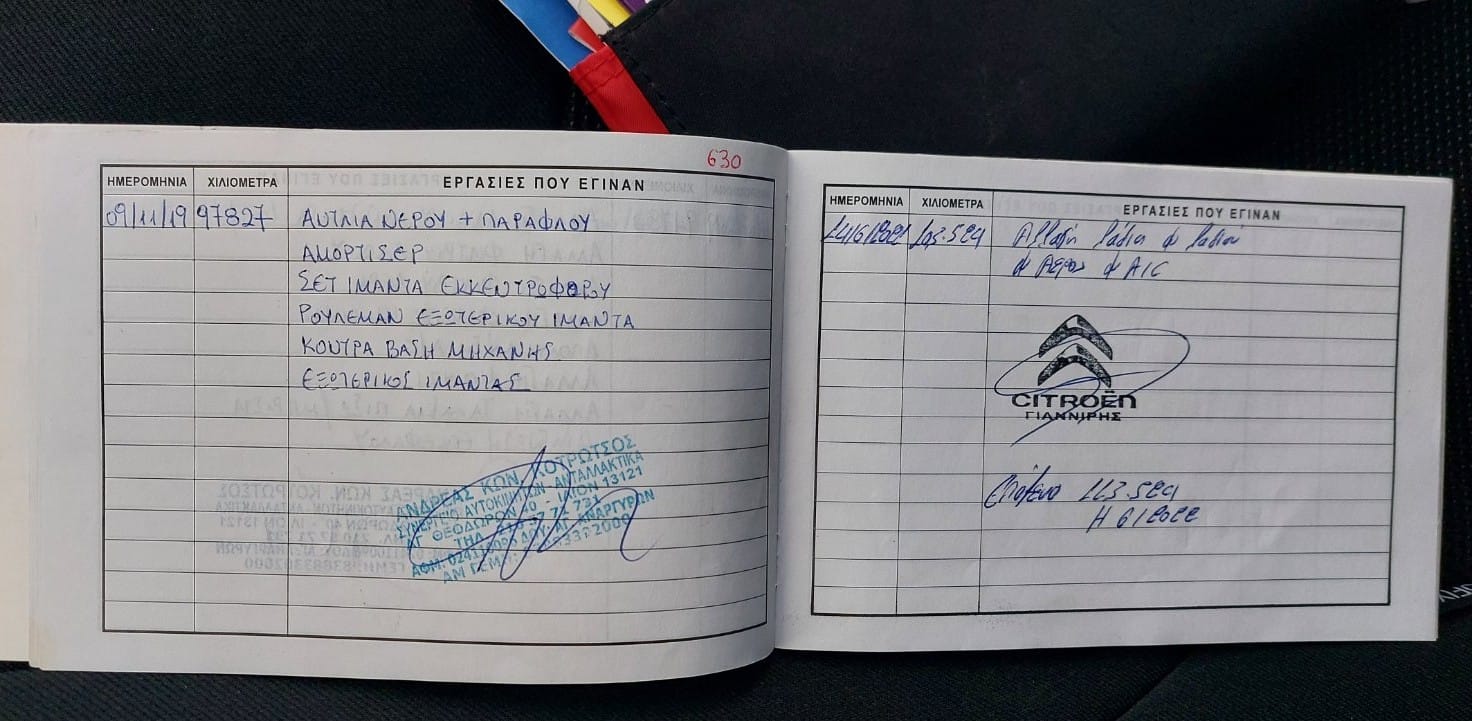 630
ΗΜΕΡΟΜΗΝΙΑ ΧΙΛΙΟΜΕΤΡΑ ΕΡΓΑΣΙΕΣ ΠΟΥ ΕΓΙΝΑΝ
09/11/19 97827 ΑΝΤΛΙΑ ΝΕΡΟΥ + ΠΑΡΑΦΛΟΥ
ΑΜΟΡΤΙΣΕΡ
ΣΕΤ ΙΜΑΝΤΑ ΕΚΚΕΝΤΡΟΦΟΡΟΥ
ΡΟΥΛΕΜΑΝ ΕΞΩΤΕΡΙΚΟΥ ΙΜΑΝΤΑ
ΚΟΝΤΡΑ ΒΑΣΗ ΜΗΧΑΝΗΣ
ΕΞΩΤΕΡΙΚΟΣ ΙΜΑΝΤΑΣ
ΑΝΔΡΕΑΣ ΚΩΝ. ΚΟΥΡΩΤΣΟΣ
ΣΥΝΕΡΓΕΙΟ ΑΥΤΟΚΙΝΗΤΩΝ - ΑΝΤΑΛΛΑΚΤΙΚΑ
ΑΓ. ΘΕΟΔΩΡΩΝ 40 - ΙΛΙΟΝ 13121
ΤΗΛ. 210 57 71 731
ΑΦΜ: ΔΟΥ: ΑΓ. ΑΝΑΡΓΥΡΩΝ
ΗΜΕΡΟΜΗΝΙΑ ΧΙΛΙΟΜΕΤΡΑ ΕΡΓΑΣΙΕΣ ΠΟΥ ΕΓΙΝΑΝ
103.521 Αλλαγή Λάδια Φ Λαδιού
Φ Αερος Φ A/C
CITROËN
ΓΙΑΝΝΙΡΗΣ
Επόμενο 113.521
Η 6/2022